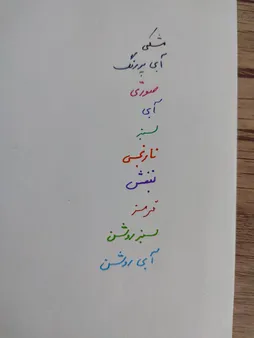 مشکی
آبی پررنگ
صورتی
آبی
سبز
نارنجی
بنفش
قرمز
سبز روشن
آبی روشن